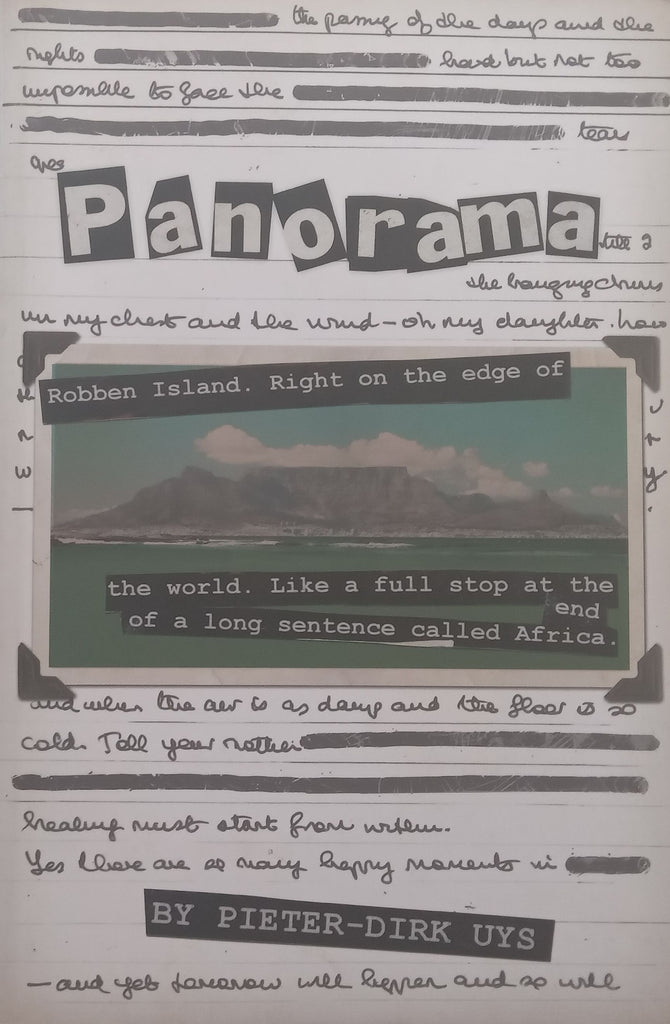 the passing of the days and the
nights hard but not too
impossible to face the
tears
Panorama
like a
the hanging
on my chest and the wind – oh my daughter. how
Robben Island. Right on the edge of
the world. Like a full stop at the
end
of a long sentence called Africa.
and when the air is as damp and the floor is so
cold. Tell your mother
healing must start from within.
Yes there are so many happy moments in
BY PIETER-DIRK UYS
– and yet tomorrow will happen and so will